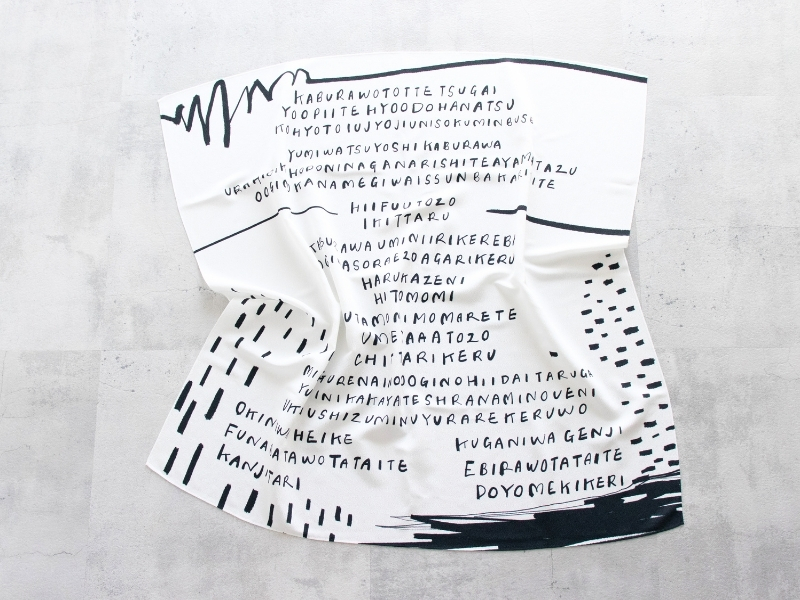 KABURAWOTOTTETSUGAI
YOOPIITE HYOODOHANATSU
HYOTOIUJYOJIUNISOKUMINBUSE
YUMIWATSUYOSHI KABURAWA
HIBIKU
NAGANARISHITEAYAMATAZU
KANAMEGIWAISSUNBAKARI
ITE
HIIFUUTOZO
IKITTARU
KABURAWAUMINIIRIKEREBA
ASORAEZOAGARIKERU
HARUKAZENI
HITOMOMI
UTAMOMIMOMARETE
UMIE
TOZO
CHITTARIKERU
NOOGINOHIIDAITARUGA
KAKAYATESHRANAMINOUENI
UKIUSHIZUMINUYURAREKERUWO
OKINIWA HEIKE
FUNABATAWOTATAITE
KANJITARI
KUGANIWA GENJI
EBIRAWOTATAITE
DOYOMEKIKERI